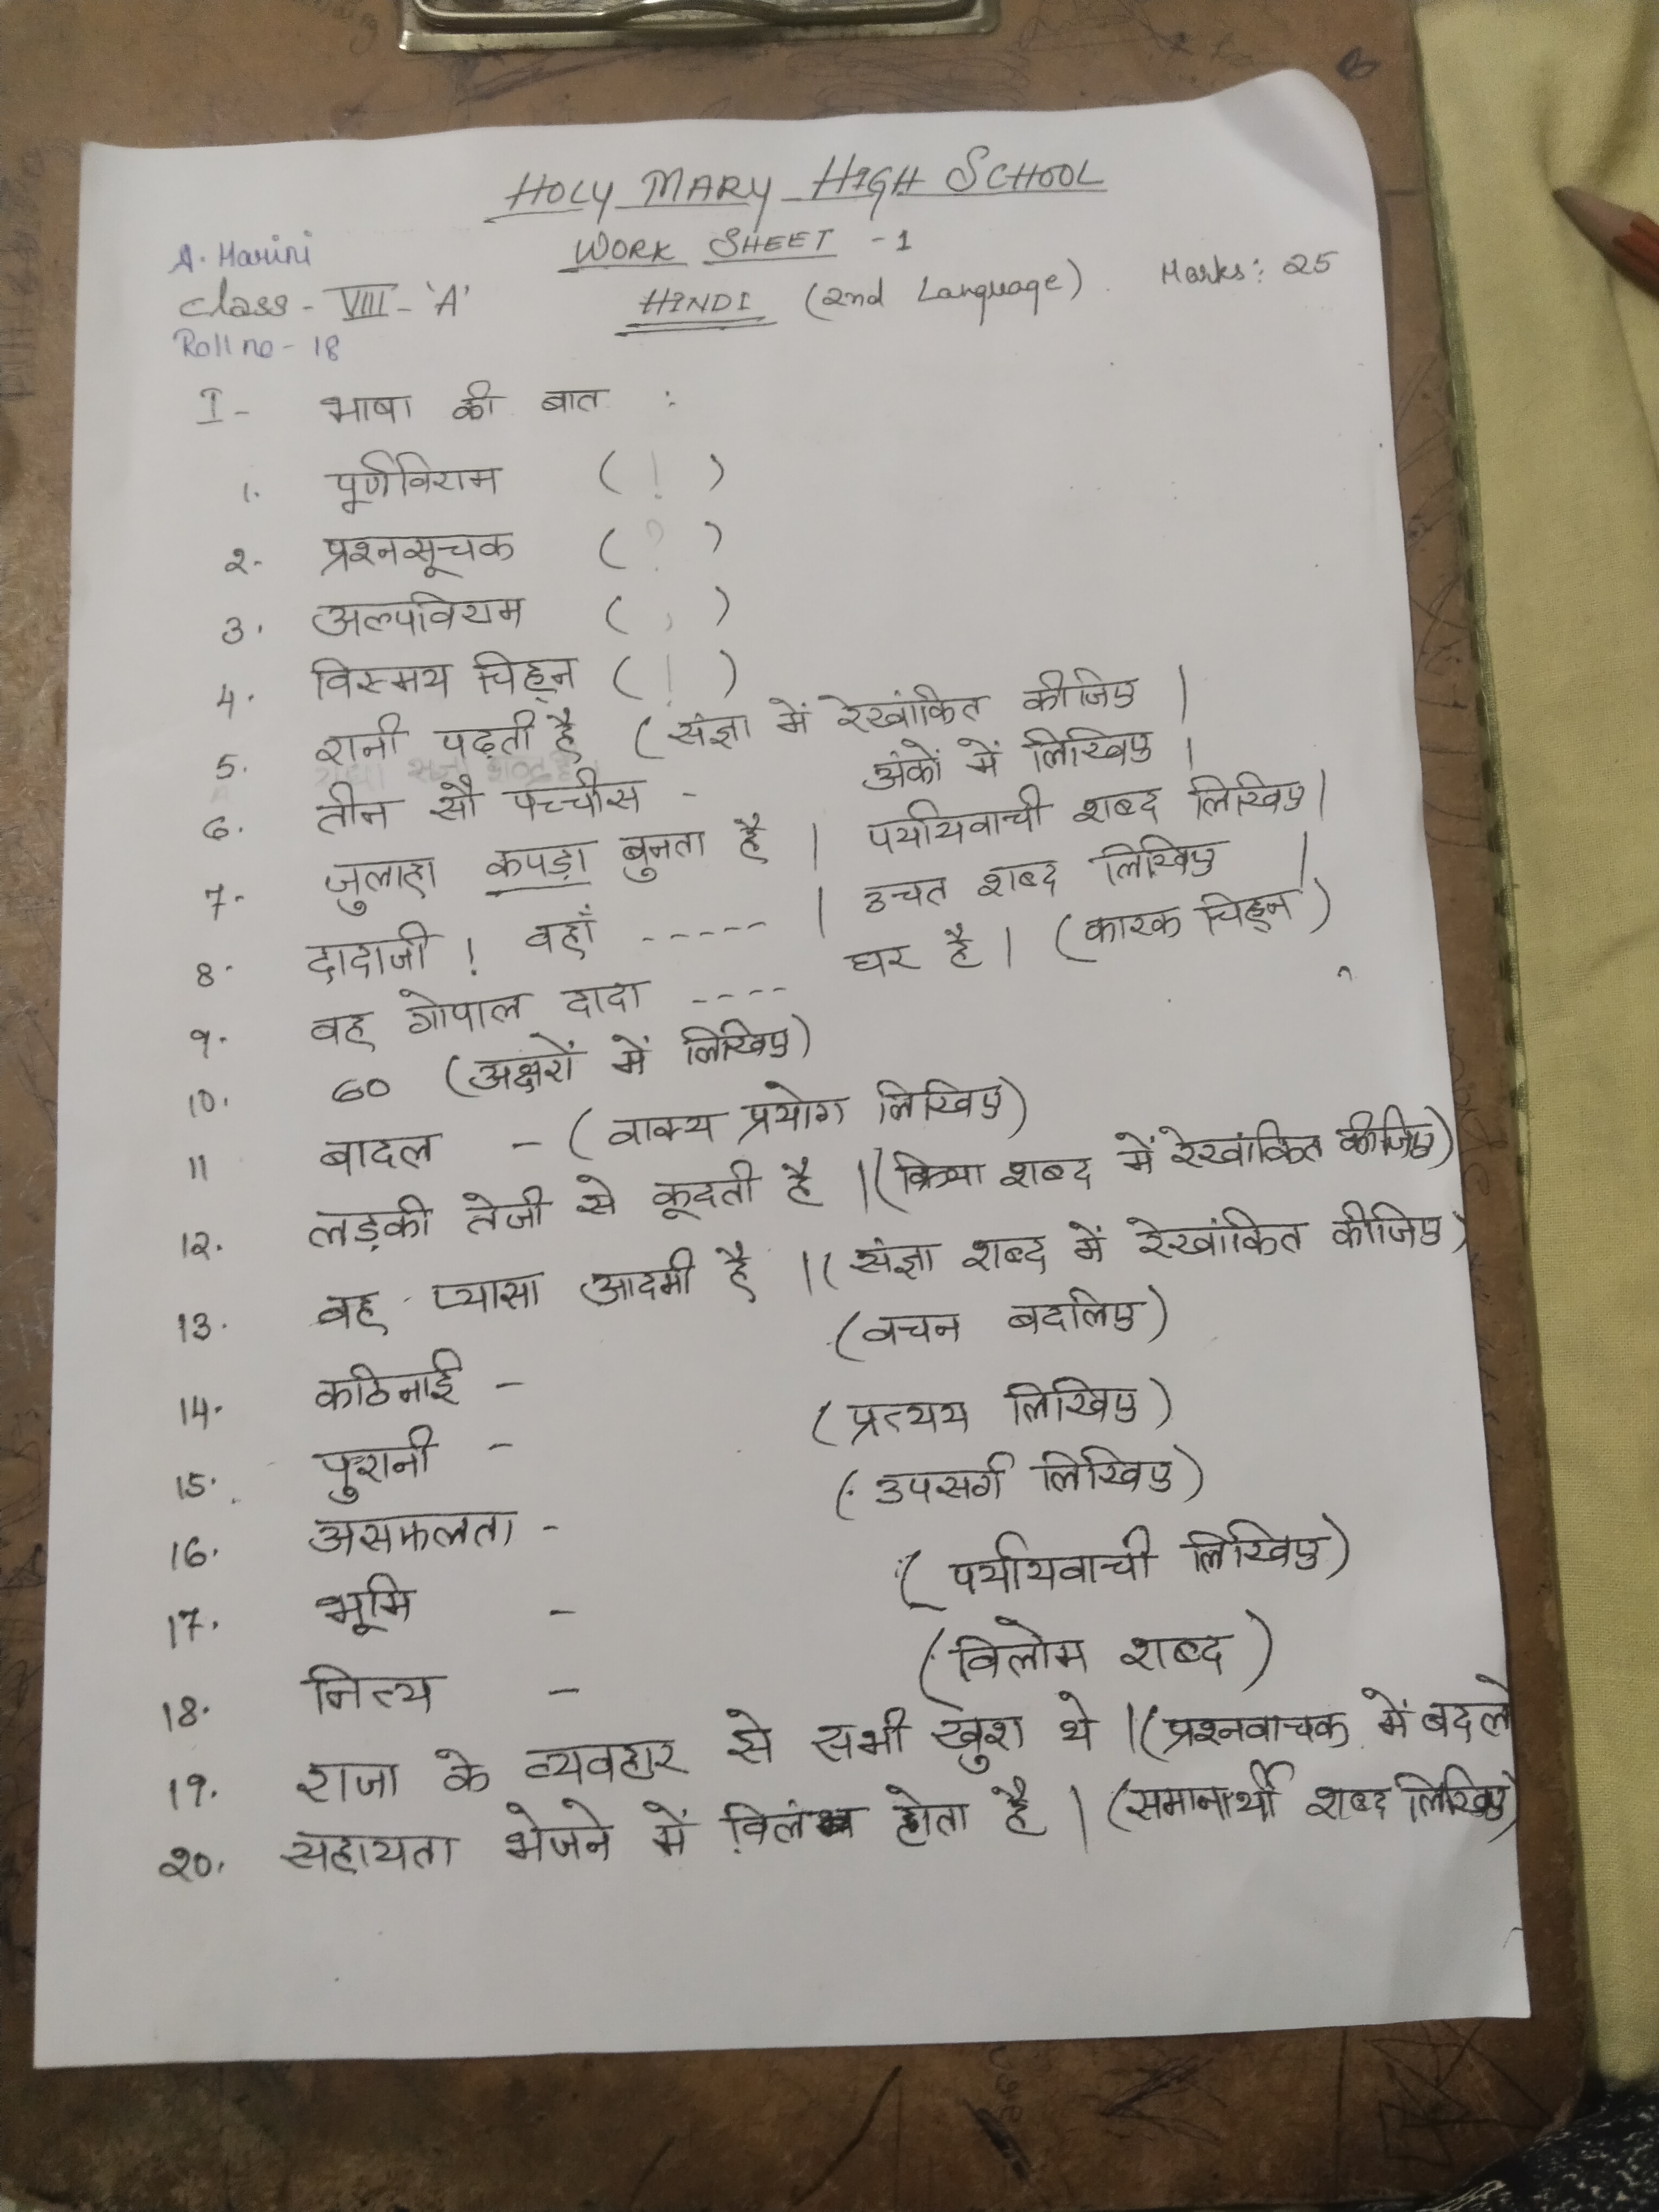 HOLY MARY HIGH SCHOOL
A. Harini WORK SHEET - 1
Class - VIII - 'A' HINDI (2nd Language) Marks: 25
Roll no - 18
I - भाषा की बात :
1. पूर्णविराम ( ! )
2. प्रश्नसूचक ( ? )
3. अल्पविराम ( , )
4. विस्मय चिह्न ( ! )
5. रानी पढ़ती है (संज्ञा में रेखांकित कीजिए |
6. तीन सौ पच्चीस - अंकों में लिखिए |
7. जुलाहा कपड़ा बुनता है | पर्यायवाची शब्द लिखिए |
8. दादाजी ! वहाँ ----- | उचत शब्द लिखिए |
9. वह गोपाल दादा ---- घर है | (कारक चिह्न)
10. 60 (अक्षरों में लिखिए)
11 बादल - (वाक्य प्रयोग लिखिए)
12. लड़की तेजी से कूदती है | (क्रिया शब्द में रेखांकित कीजिए)
13. वह प्यासा आदमी है | (संज्ञा शब्द में रेखांकित कीजिए)
14. कठिनाई - (वचन बदलिए)
15. पुरानी - (प्रत्यय लिखिए)
16. असफलता - (उपसर्ग लिखिए)
17. भूमि - (पर्यायवाची लिखिए)
18. नित्य - (विलोम शब्द)
19. राजा के व्यवहार से सभी खुश थे | (प्रश्नवाचक में बदले
20. सहायता भेजने में विलंब होता है | (समानार्थी शब्द लिखिए)